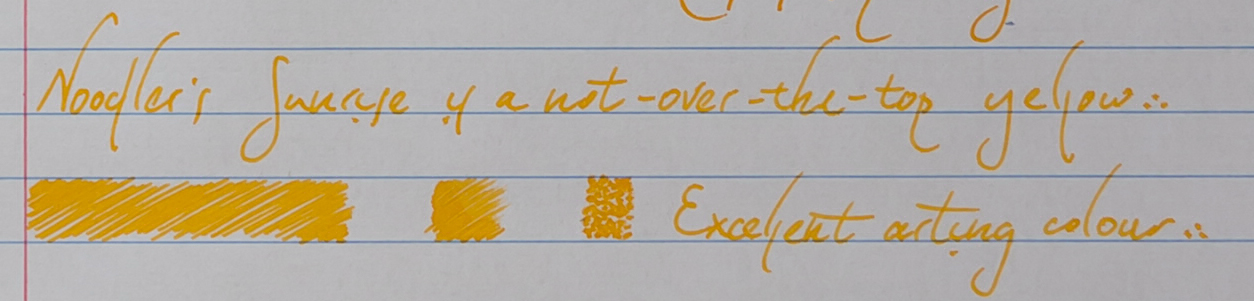 Noodler's Sunrise is a not-over-the-top yellow...
Excellent arting colour...